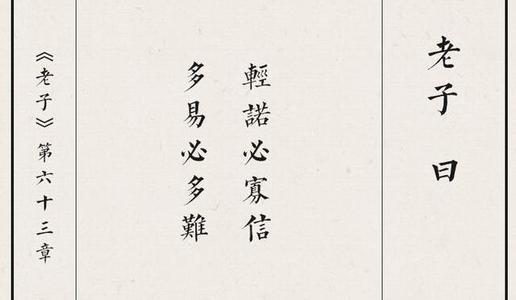 老子 曰
輕諾必寡信
多易必多難
《老子》第六十三章